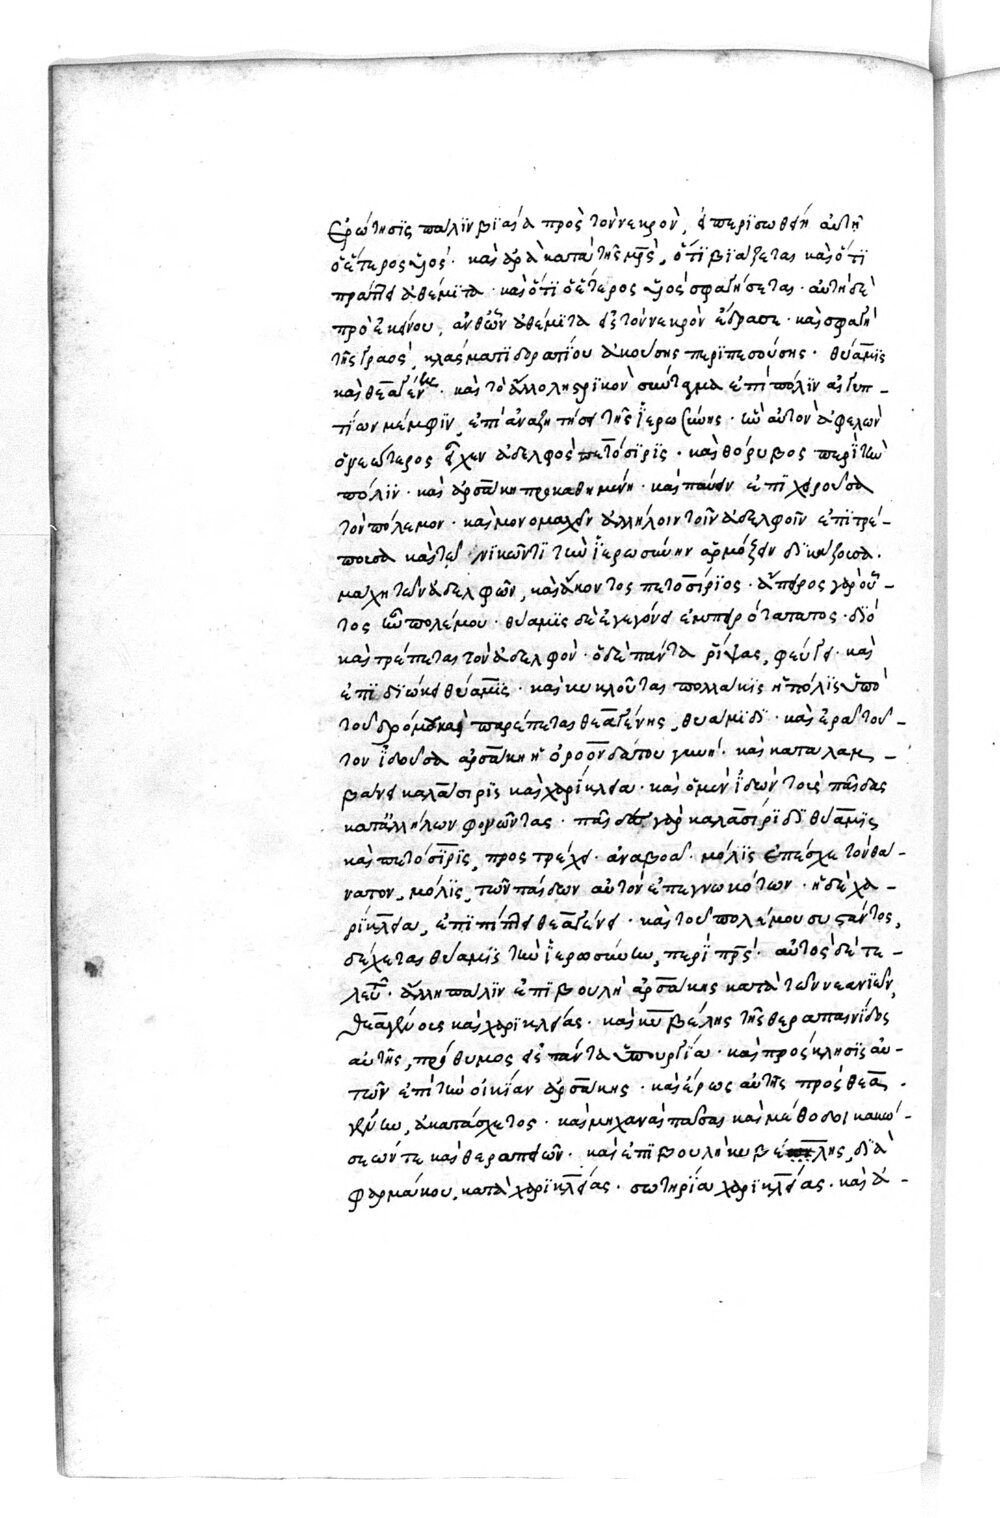 Ἐρώτησϊς παλϊν βϊαία πρὸς τὸν νεκρὸν, εἰ περϊσωθείη αὐτῆ
ὁ ἕτερος υἱός· καὶ ἀρὰ κατὰ τῆς μρς, ὅτϊ βϊάζεται καὶ ὅτϊ
πράττει ἀθέμϊτα· καὶ ὅτϊ ὁ ἕτερος υἱὸς σφαγήσεται· αὐτὴ δὲ
πρὸ ἐκείνου, ἀνθ' ὧν ἀθέμϊτα εἰς τὸν νεκρὸν ἔδρασε· καὶ σφαγὴ
τῆς γραὸς, κλάσματϊ δορατϊου ἀκούσης περϊπεσούσης· θύαμϊς
καὶ θεαγένης· καὶ τὸ ἄλλο ληστρϊκὸν σύνταγμα ἐπὶ πόλϊν αἰγυπ-
τίων μέμφϊν, ἐπὶ ἀναζητήσει τῆς ϊερωσύνης· ἣν αὐτὸν ἀφελὼν
ὁ νεώτερος εἶχεν ἀδελφὸς πετόσιρϊς· καὶ θόρυβος περὶ τὴν
πόλϊν· καὶ ἀρσάκη προκαθημένη· καὶ παύειν ἐπϊχειροῦσα
τὸν πόλεμον· καὶ μονομαχεῖν ἀλλήλοιν τοῖν ἀδελφοῖν ἐπϊτρέ-
πουσα καὶ τῷ νικῶντϊ τὴν ϊερωσύνην ἁρμόζειν δϊκάζουσα·
μάχη τῶν ἀδελφῶν, καὶ ἄκοντος πετοσίρϊος· ἄπειρος γὰρ οὗ-
τος ἦν πολέμου· θύαμϊς δὲ ἐγεγόνει ἐμπειρότατος· δϊὸ
καὶ τρέπεται τὸν ἀδελφὸν· ὁ δὲ πάντα ρίψας, φεύγει· καὶ
ἐπϊδϊώκει θύαμϊς· καὶ κυκλοῦται πολλάκϊς ἡ πόλϊς ὑπὸ
τοῦ δρόμου καὶ παρέπεται θεαγένης, θυάμϊδϊ· καὶ ἐρᾶ τού-
του ϊδοῦσα ἀρσάκη ἡ ὀροονδάτου γυνή· καὶ καταλαμ-
βάνει καλάσιρϊς καὶ χαρίκλεια· καὶ ὁ μὲν ϊδὼν τοὺς παῖδας
κατ' ἀλλήλων φονῶντας· παῖδες γὰρ καλασίρϊδϊ θύαμϊς
καὶ πετόσϊρϊς, προστρέχει· ἀναβοᾶ· μόλϊς ἐπέσχε τὸν θά-
νατον, μόλϊς, τῶν παίδων αὐτὸν ἐπεγνωκότων· ἡ δὲ χα-
ρίκλεια, ἐπϊπίπτει θεαγένει· καὶ τοῦ πολέμου συστάντος,
δέχεται θύαμϊς τὴν ϊερωσύνην, περὶ πρς· αὐτὸς δὲ τε-
λευτᾶ· ἄλλη πάλϊν ἐπϊβουλὴ ἀρσάκης κατὰ τῶν νεανϊῶν,
θεαγένους καὶ χαρϊκλείας· καὶ κυβέλης τῆς θεραπαινίδος
αὐτῆς, πρόθυμος εἰς πάντα ὑπουργία· καὶ πρόσκλησϊς αὐ-
τῶν ἐπὶ τὴν οἰκίαν ἀρσάκης· καὶ ἔρως αὐτῆς πρὸς θεα-
γένην, ἀκατάσχετος· καὶ μηχαναὶ πᾶσαι καὶ μέθοδοι κακώ-
σεών τε καὶ θεραπειῶν· καὶ ἐπϊβουλὴ κυβέλης, δϊὰ
φαρμάκου, κατὰ χαρϊκλείας· σωτηρία χαρϊκλείας· καὶ ἀ-